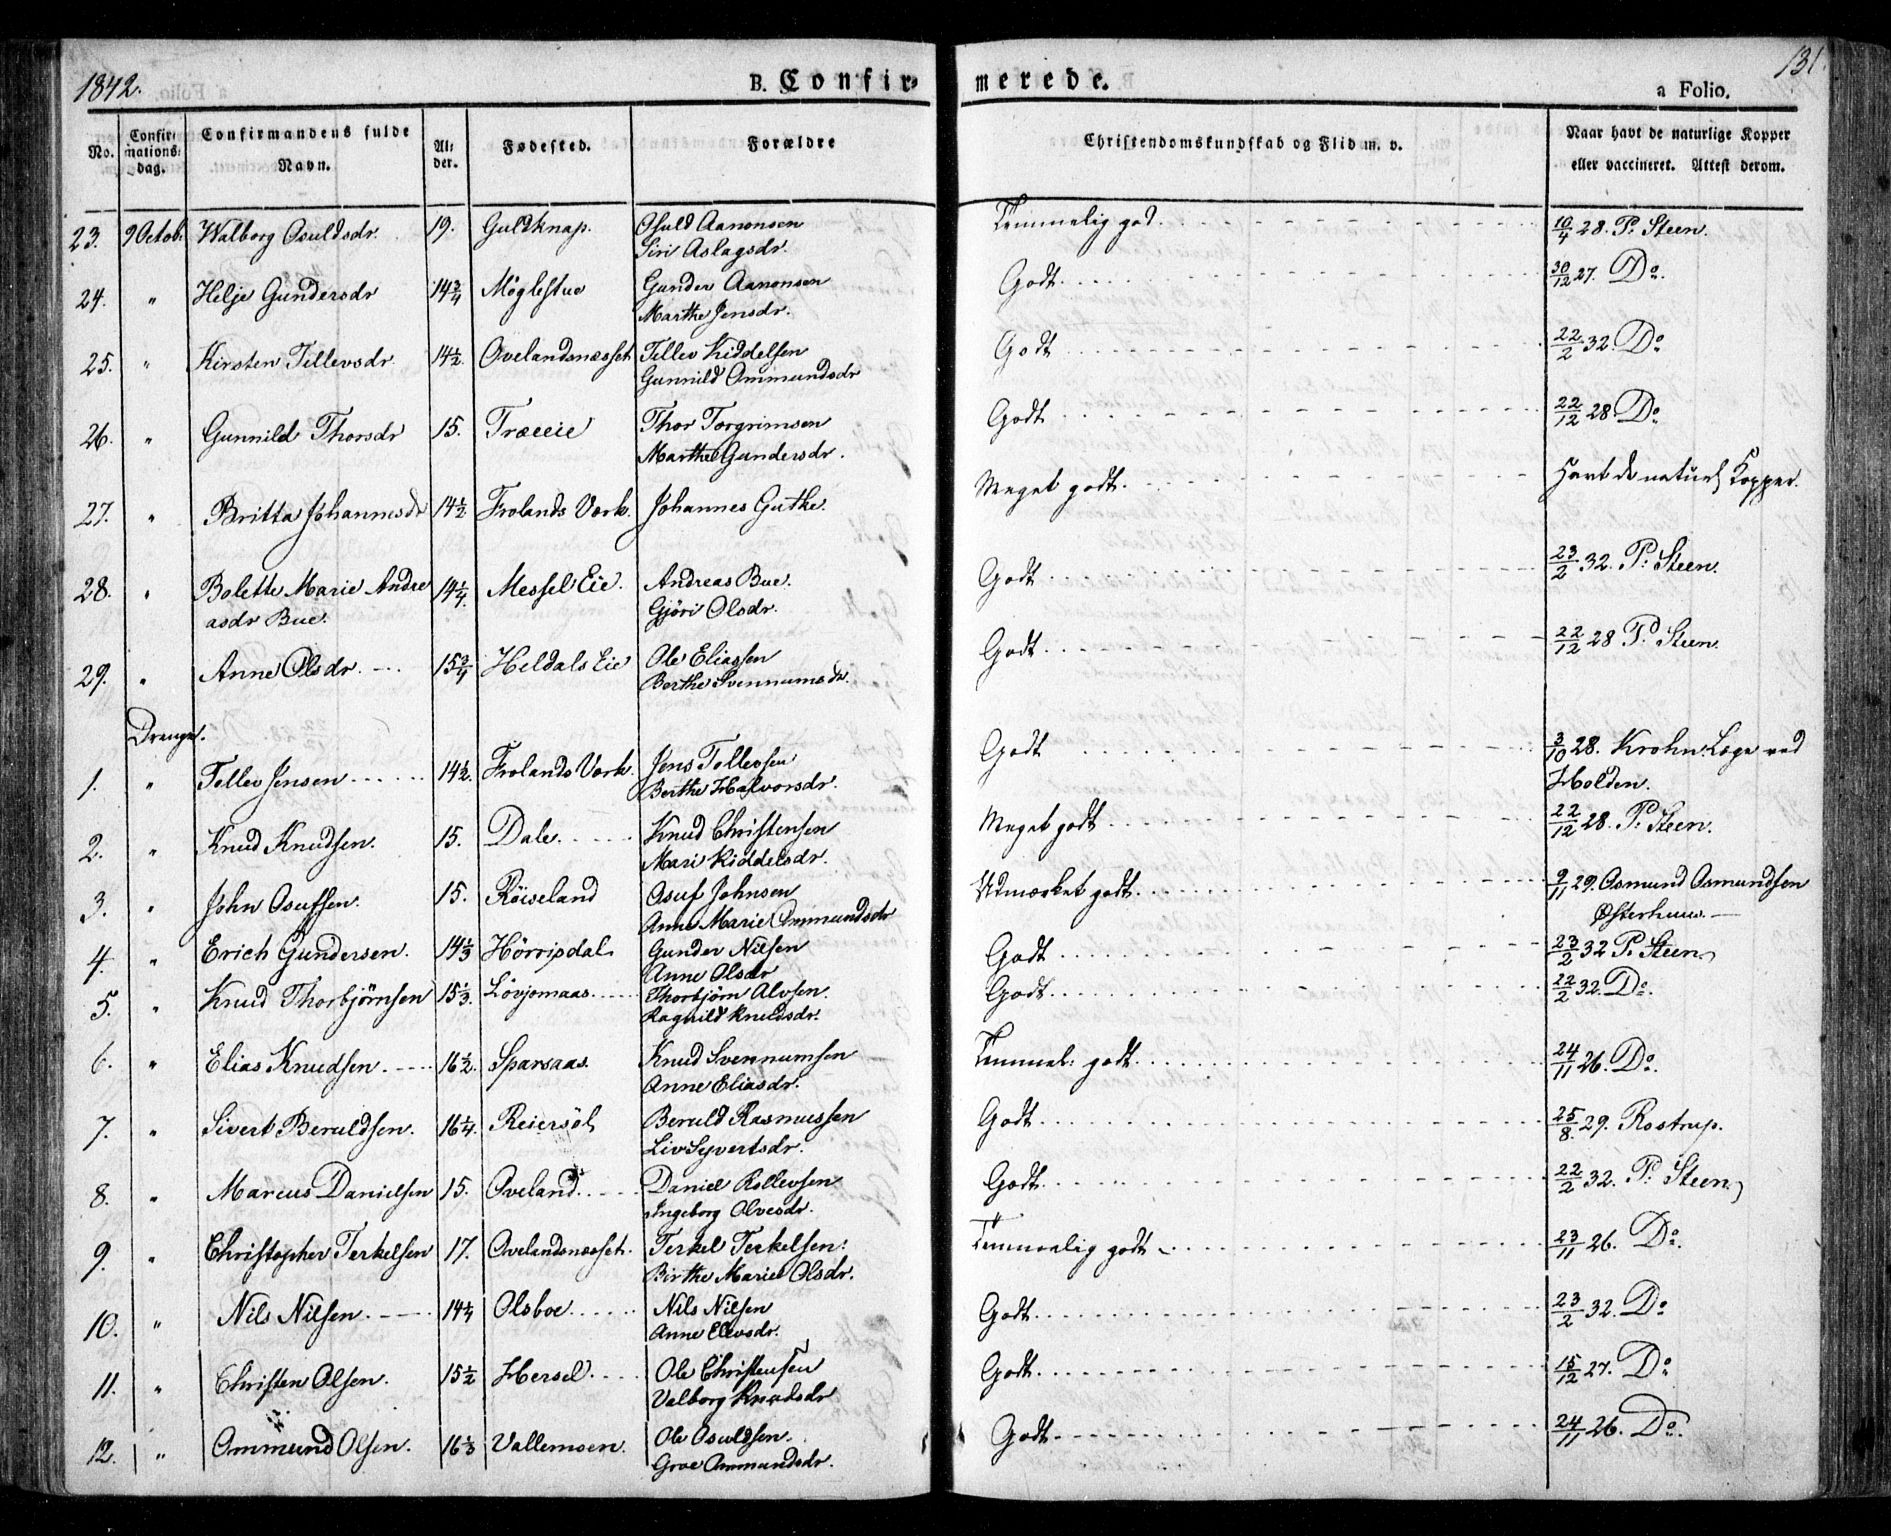 1842. B. Confir- merede. a Folio. 131.
No. Confir- mations- dag. Confirmandens fulde Navn. Al- der. Fødested. Forældre Christendomskundskab og Flid m. v. Naar havt de naturlige Kopper eller vaccineret. Attest derom.
23. 9 Octob. Walborg Osuldsdr. 19. Guldknap. Osuld Aanonsen Temmelig god. 10/4 28. P. Steen.
Siri Aslagsdr.
24. " Helje Gundersdr 14 3/4 Møglestue Gunder Aanonsen Godt. 30/12 27. Do.
Marthe Jensdr.
25. " Kirsten Tellevsdr. 14 1/2. Ovelandsnæsset Tellev Kiddelsen Godt 22/2 32. Do
Gunnild Ommundsdr
26. " Gunnild Thorsdr 15. Træeie Thor Torgrimsen Godt 22/12 28. Do
Marthe Gundersdr.
27. " Britta Johannesdr 14 1/2. Frolands Værk. Johannes Guthe. Meget godt. Havt de naturl. Kopper.
28. " Bolette Marie Andre 14 1/4. Messel Eie. Andreas Bue. Godt 23/2 32. P. Steen.
asdr Bue. Gjöri Olsdr.
29. " Anne Olsdr. 15 3/4 Heldals Eie Ole Eliassen Godt 22/12 28 P. Steen.
Berthe Svennumsdr.
Drenge.
1. " Tellev Jensen 14 1/2. Frolands Værk. Jens Tellevsen Godt 3/10 28. Krohn Læge ved
Berthe Halvorsdr. Holden.
2. " Knud Knudsen. 15. Dale. Knud Christensen Meget godt 22/12 28. P. Steen.
Mari Kiddelsdr.
3. " John Osufsen. 15. Röiseland Osuf Johnsen Udmærket godt. 9/11 29. Osmund Osmundsen
Anne Marie Ommundsdr Østerhuus.
4. " Erich Gundersen. 14 1/3 Hörripdal Gunder Nilsen Godt 23/2 32 P. Steen
Anne Olsdr
5. " Knud Thorbjörnsen 15 1/3. Lövjomaas. Thorbjörn Alvsen. Godt 22/2 32. Do.
Ragnild Knudsdr.
6. " Elias Knudsen. 16 1/2. Sparsaas. Knud Svennumsen Temmel: godt. 24/11 26. Do.
Anne Eliasdr.
7. " Sivert Beruldsen. 16 1/4. Reiersöl Beruld Rasmussen Godt 25/8. 29. Rostrup.
Liv Syvertsdr.
8. " Marcus Danielsen 15. Oveland. Daniel Rollevsen Godt. 22/2 32. P. Steen
Ingeborg Olvesdr.
9. " Christopher Terkelsen 17. Ovelandsnæsset. Terkel Terkelsen. Temmelig godt 23/11 26. Do.
Birthe Marie Olsdr.
10. " Nils Nilsen. 14 1/4 Olsboe. Nils Nilsen Godt. 23/2 32. Do
Anne Elevsdr.
11. " Christen Olsen. 15 1/2 Hersel. Ole Christensen Godt. 15/12 27. Do
Valborg Knudsdr
12. " Ommund Olsen. 16 1/3 Vallemoen. Ole Osuldsen. Godt. 24/11 26. Do.
Groe Ommundsdr.